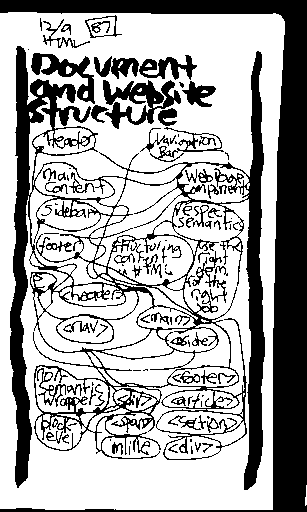 12/9 87
HTML
Document
and website
structure
Header
Navigation
Bar
main
content
Webpage
components
Sidebar
respect
semantics
footer
structuring
content
w HTML
use the
right
elem.
for the
right
job
<header>
<nav>
<main>
<aside>
non-
semantic
wrappers
<div>
<footer>
<article>
block-
level
<span>
<section>
inline
<div>